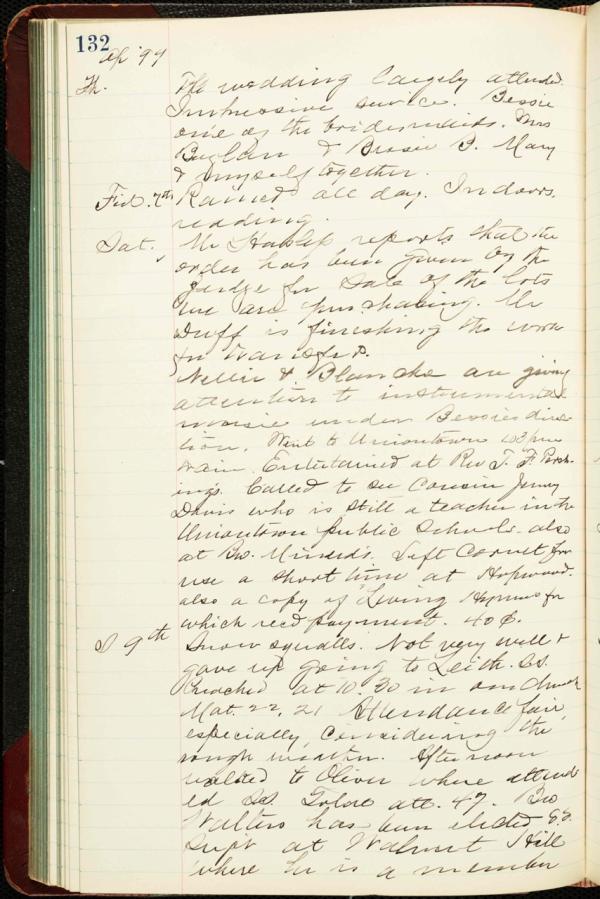 132
Ap '99
Th. The wedding largely attended.
Impressive service. Bessie
one of the bridesmaids. Mrs
& Bessie B. Mary
& myself together.
Fri. 7th Rained all day. Indoors.
reading.
Sat. Mr reports that the
order has been given by the
Judge for Sale of the lots
we are purchasing. Mr
Duff is finishing the work
for transfer.
Nellie & Blanche are giving
attention to instrumental
music under Bessies direc
tion. Went to Uniontown
train. Entertained at Rev J. F.
ing's. Called to see Cousin Jenny
Davis who is still a teacher in the
Uniontown Public Schools. also
at Bro. Minerd's. Left Cornet for
use a short time at Hopwood.
also a copy of "Living Hymns" for
which recd payment. 40¢.
S 9th Snow squalls. Not very well &
gave up going to Leith. S.S.
Preached at 10.30 in our church
Mat. 22, 21 Attendance fair,
especially, considering the
rough weather. Afternoon
walked to Oliver where attend
ed S.S. att. 47. Bro
Walters has been elected S.S.
Supt at Walnut Hill
where he is a member